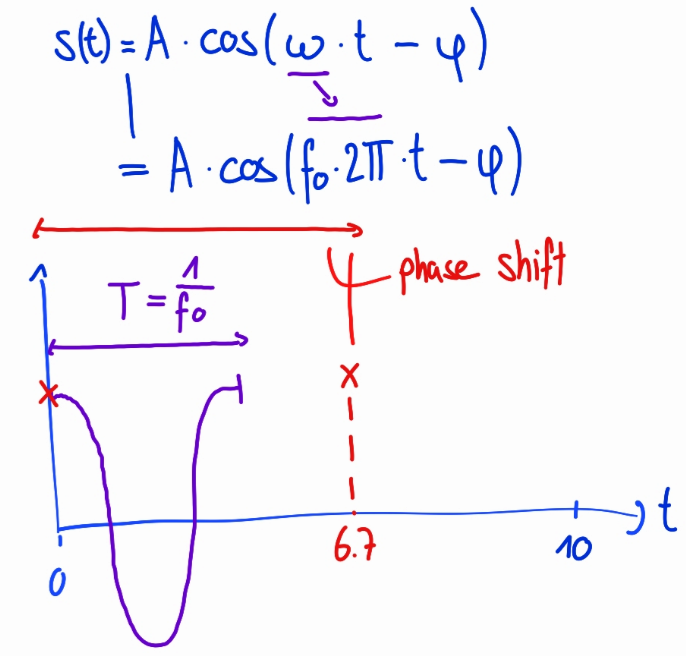 s(t) = A · cos(ω · t − φ)
= A · cos(f₀ · 2π · t − φ)
φ phase shift
T = 1/f₀
6.7
10
t
0